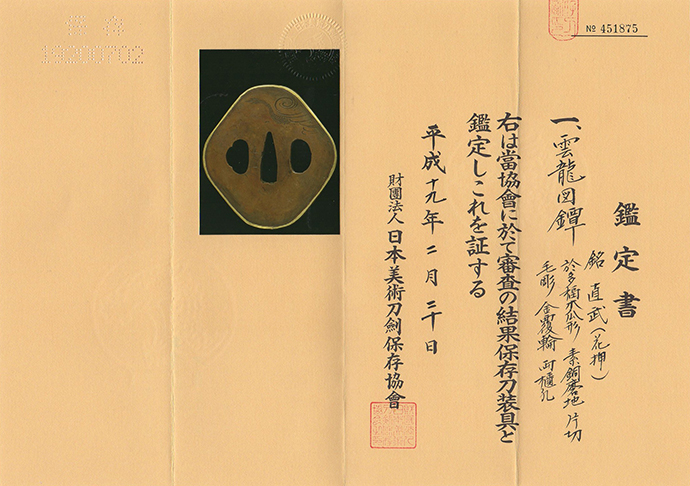 鑑定書
№ 451875
一、雲龍図鐔
銘 直武(花押)
於多福木瓜形 素銅磨地 片切
毛彫 金覆輪 両櫃孔
右は當協會に於て審査の結果保存刀装具と
鑑定しこれを証する
平成十九年二月二十日
財團法人 日本美術刀剣保存協會
19200702